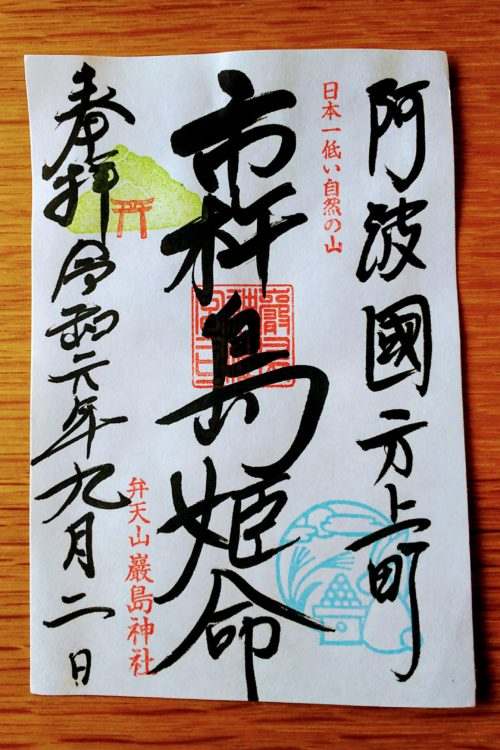 阿波國方上町
日本一低い自然の山
市杵島姫命
弁天山 巖島神社
奉拝 令和元年九月二日